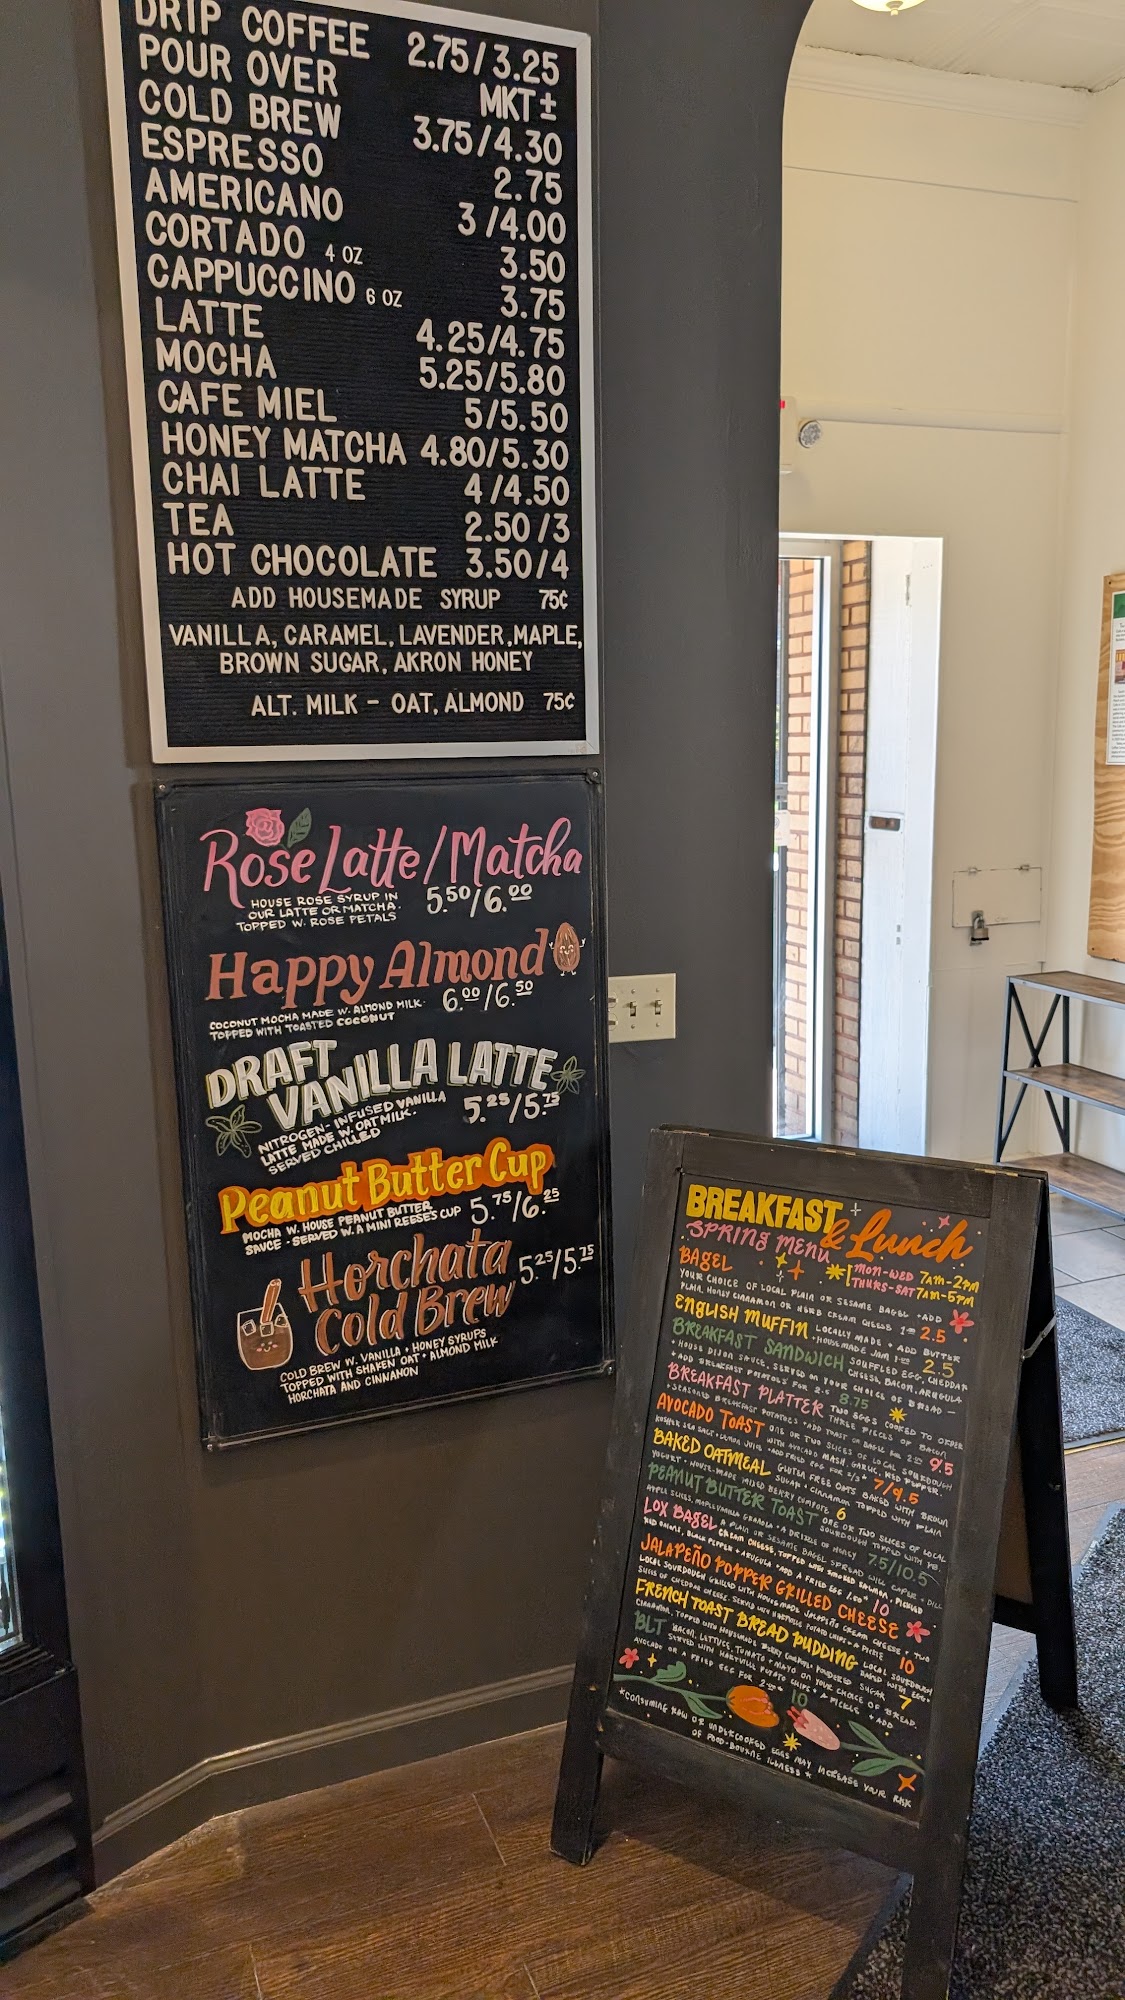 DRIP COFFEE 2.75/3.25
POUR OVER MKT±
COLD BREW 3.75/4.30
ESPRESSO 2.75
AMERICANO 3/4.00
CORTADO 4 OZ 3.50
CAPPUCCINO 6 OZ 3.75
LATTE 4.25/4.75
MOCHA 5.25/5.80
CAFE MIEL 5/5.50
HONEY MATCHA 4.80/5.30
CHAI LATTE 4/4.50
TEA 2.50/3
HOT CHOCOLATE 3.50/4
ADD HOUSEMADE SYRUP 75¢
VANILLA, CARAMEL, LAVENDER, MAPLE,
BROWN SUGAR, AKRON HONEY
ALT. MILK - OAT, ALMOND 75¢
Rose Latte/Matcha
HOUSE ROSE SYRUP IN
OUR LATTE OR MATCHA.
TOPPED W. ROSE PETALS
5.50/6.00
Happy Almond
COCONUT MOCHA MADE W. ALMOND MILK.
TOPPED WITH TOASTED COCONUT
6.00/6.50
DRAFT
VANILLA LATTE
NITROGEN-INFUSED VANILLA
LATTE MADE W. OAT MILK.
SERVED CHILLED
5.25/5.75
Peanut Butter Cup
MOCHA W. HOUSE PEANUT BUTTER
SAUCE - SERVED W. A MINI REESE'S CUP
5.75/6.25
Horchata
Cold Brew
5.25/5.75
COLD BREW W. VANILLA + HONEY SYRUPS
TOPPED WITH SHAKEN OAT + ALMOND MILK
HORCHATA AND CINNAMON
BREAKFAST
& Lunch
SPRING MENU
MON-WED 7AM-2PM
THURS-SAT 7AM-5PM
BAGEL
YOUR CHOICE OF LOCAL PLAIN OR SESAME BAGEL + ADD
PLAIN, HONEY CINNAMON OR HERB CREAM CHEESE 2.5
ENGLISH MUFFIN LOCALLY MADE + ADD BUTTER
+ HOUSEMADE JAM 2.5
BREAKFAST SANDWICH SOUFFLED EGG, CHEDDAR
CHEESE, BACON, ARUGULA
+ HOUSE DIJON SAUCE, SERVED ON YOUR CHOICE OF BREAD -
+ ADD BREAKFAST POTATOES FOR 8.75
BREAKFAST PLATTER TWO EGGS COOKED TO ORDER
THREE PIECES OF BACON
+ SEASONED BREAKFAST POTATOES + ADD TOAST OR BAGEL FOR 9.5
AVOCADO TOAST ONE OR TWO SLICES OF LOCAL SOURDOUGH
WITH AVOCADO MASH, GARLIC, RED PEPPER,
KOSHER SEA SALT + LEMON JUICE + ADD FRIED EGG FOR 7/9.5
BAKED OATMEAL GLUTEN FREE OATS BAKED WITH BROWN
SUGAR + CINNAMON TOPPED WITH PLAIN
YOGURT + HOUSE-MADE MIXED BERRY COMPOTE 6
PEANUT BUTTER TOAST ONE OR TWO SLICES OF LOCAL
SOURDOUGH TOPPED WITH PB,
APPLE SLICES, GRANOLA + A DRIZZLE OF HONEY 7.5/10.5
LOX BAGEL A PLAIN OR SESAME BAGEL SPREAD WITH CAPER + DILL
CREAM CHEESE, TOPPED WITH SMOKED SALMON, PICKLED
RED ONIONS, BLACK PEPPER + ARUGULA + ADD A FRIED EGG 10
JALAPEÑO POPPER GRILLED CHEESE
LOCAL SOURDOUGH GRILLED WITH HOUSEMADE JALAPEÑO CREAM CHEESE + TWO
SLICES OF CHEDDAR CHEESE. SERVED WITH HARTVILLE POTATO CHIPS + A PICKLE 10
FRENCH TOAST BREAD PUDDING LOCAL SOURDOUGH
BAKED WITH EGG +
CINNAMON, TOPPED WITH HOUSEMADE BERRY COMPOTE + POWDERED SUGAR 7
BLT BACON, LETTUCE, TOMATO + MAYO ON YOUR CHOICE OF BREAD.
SERVED WITH HARTVILLE POTATO CHIPS + A PICKLE + ADD
AVOCADO OR A FRIED EGG FOR 10
*CONSUMING RAW OR UNDERCOOKED EGGS MAY INCREASE YOUR RISK
OF FOOD-BOURNE ILLNESS*